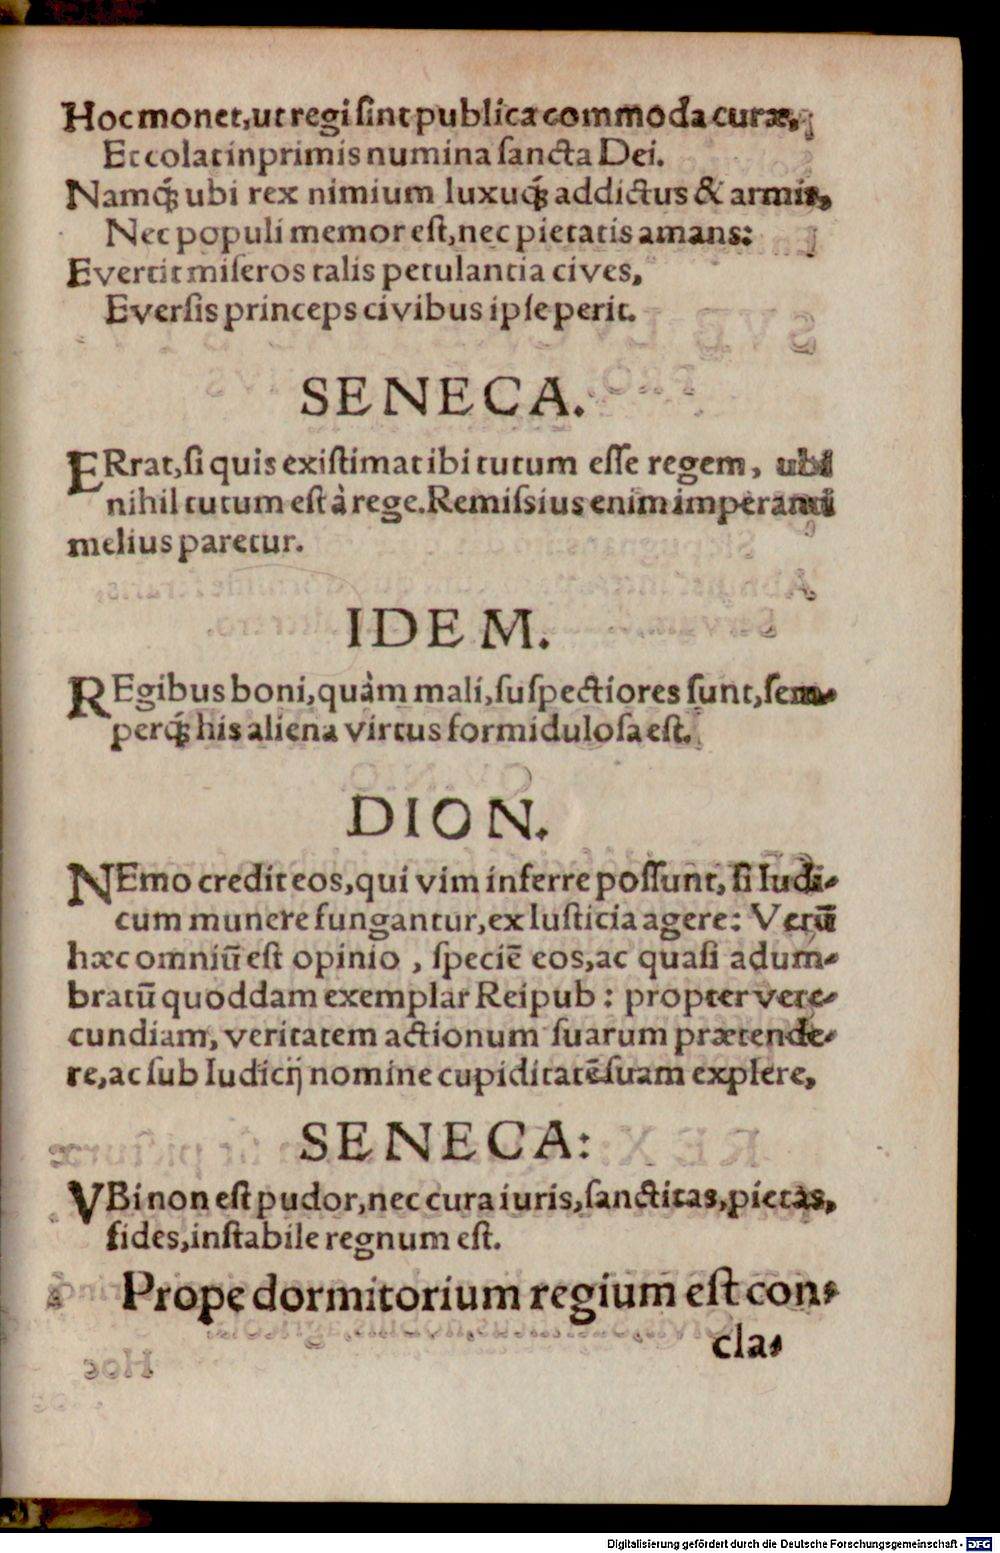 Hoc monet, ut regi ſint publica commoda curæ,
Et colat in primis numina ſancta Dei.
Namq́; ubi rex nimium luxuq́; addictus & armis,
Nec populi memor eſt, nec pietatis amans:
Evertit miſeros talis petulantia cives,
Everſis princeps civibus ipſe perit.
SENECA.
ERrat, ſi quis exiſtimat ibi tutum eſſe regem, ubi
nihil tutum eſt à rege. Remiſsius enim imperanti
melius paretur.
IDEM.
REgibus boni, quàm mali, ſuſpectiores ſunt, ſem-
perq́; his aliena virtus formiduloſa eſt.
DION.
NEmo credit eos, qui vim inferre poſſunt, ſi Iudi-
cum munere fungantur, ex Iuſticia agere: Verū
hæc omniū eſt opinio, ſpeciē eos, ac quaſi adum-
bratū quoddam exemplar Reipub: propter vere-
cundiam, veritatem actionum ſuarum prætende-
re, ac ſub Iudicij nomine cupiditatē ſuam explere,
SENECA:
VBi non eſt pudor, nec cura iuris, ſanctitas, pietas,
fides, inſtabile regnum eſt.
Prope dormitorium regium eſt con-
cla-
Digitalisierung gefördert durch die Deutsche Forschungsgemeinschaft - DFG